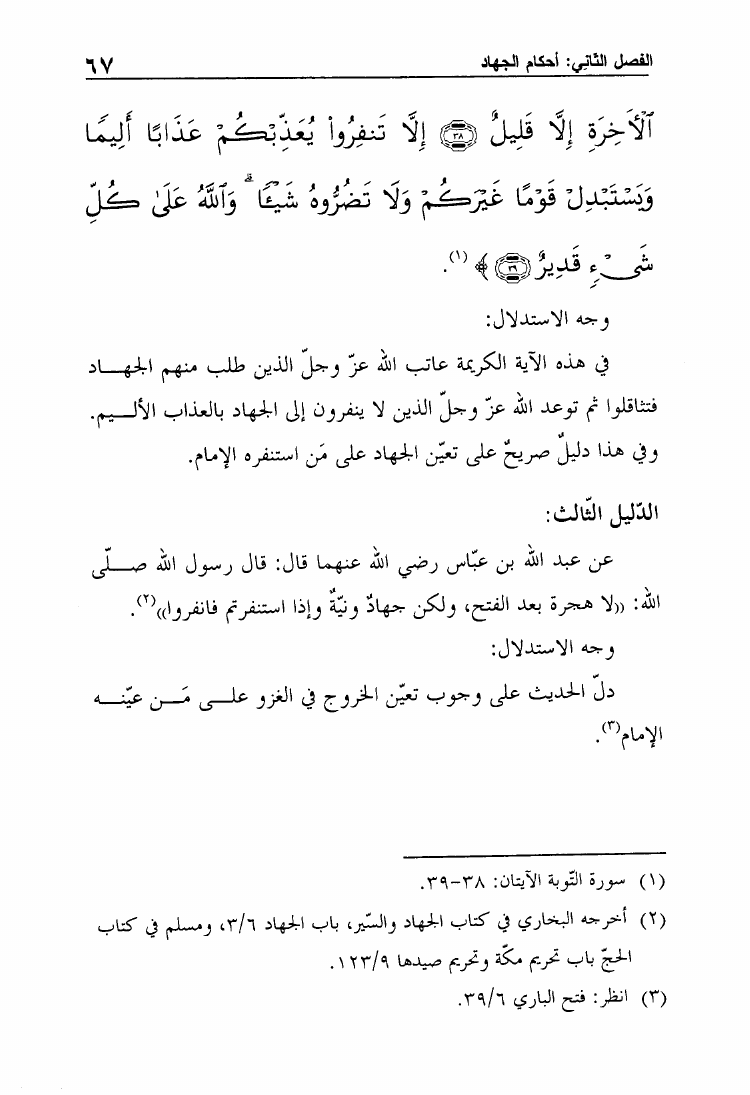 الفصل الثّاني: أحكام الجهاد ٦٧
ٱلْأَخِرَةِ إِلَّا قَلِيلٌ ٣٨ إِلَّا تَنفِرُواْ يُعَذِّبْكُمْ عَذَابًا أَلِيمًا
وَيَسْتَبْدِلْ قَوْمًا غَيْرَكُمْ وَلَا تَضُرُّوهُ شَيْـًٔا ۗ وَٱللَّهُ عَلَىٰ كُلِّ
شَىْءٍ قَدِيرٌ ٣٩ ﴾ (١).
وجه الاستدلال:
في هذه الآية الكريمة عاتب الله عزّ وجلّ الذين طلب منهم الجهـــاد
فتثاقلوا ثم توعد الله عزّ وجلّ الذين لا ينفرون إلى الجهاد بالعذاب الألـــيم.
وفي هذا دليلٌ صريحٌ على تعيّن الجهاد على مَن استنفره الإمام.
الدّليل الثّالث:
عن عبد الله بن عبّاس رضي الله عنهما قال: قال رسول الله صـــلّى
الله: ((لا هجرة بعد الفتح، ولكن جهادٌ ونيّةٌ وإذا استنفرتم فانفروا))(٢).
وجه الاستدلال:
دلّ الحديث على وجوب تعيّن الخروج في الغزو علـــى مَـــن عيّنـــه
الإمام(٣).
(١) سورة التّوبة الآيتان: ٣٨-٣٩.
(٢) أخرجه البخاري في كتاب الجهاد والسّير، باب الجهاد ٣/٦، ومسلم في كتاب
الحجّ باب تحريم مكّة وتحريم صيدها ١٢٣/٩.
(٣) انظر: فتح الباري ٣٩/٦.